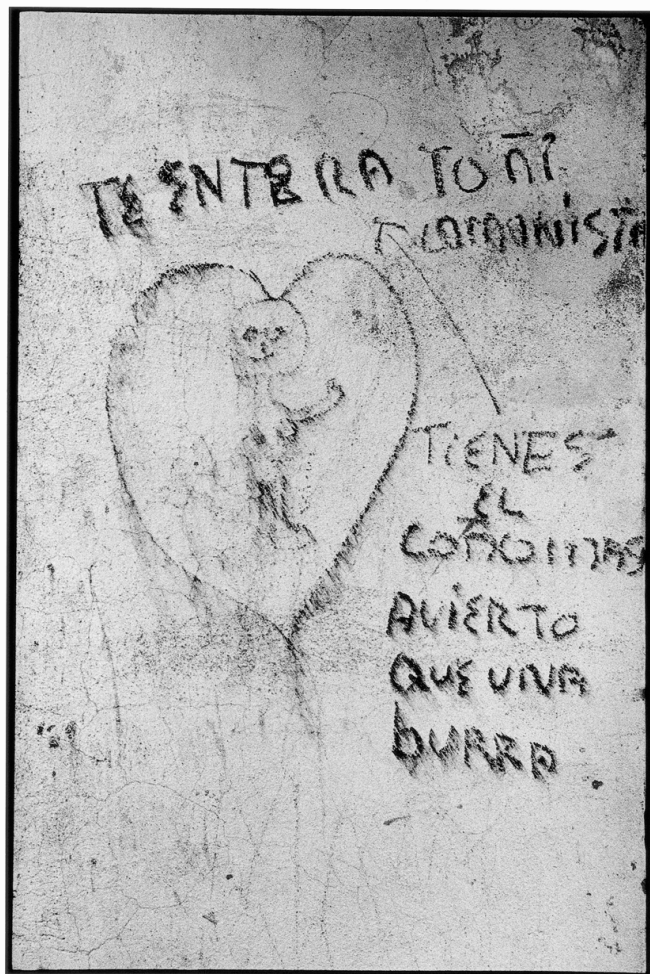 TE ENTERA TOÑI
COMONISTA
TIENES
EL
COÑO MAS
AVIERTO
QUE UNA
bURRA